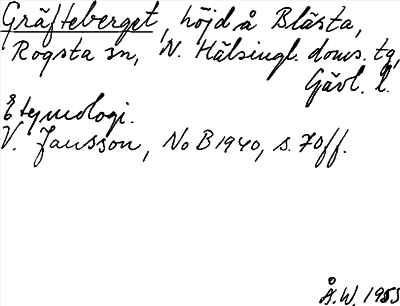 Gräfteberget, höjd å Blästa,
Rogsta sn, N. Hälsingl. doms. tg,
Gävl. l.
Etymologi.
V. Jansson, NoB 1940, s. 70ff.
Å.W. 1955